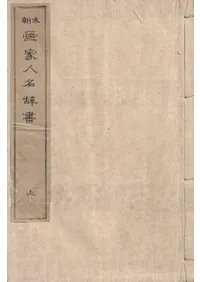 本朝
畫家人名辞書
上